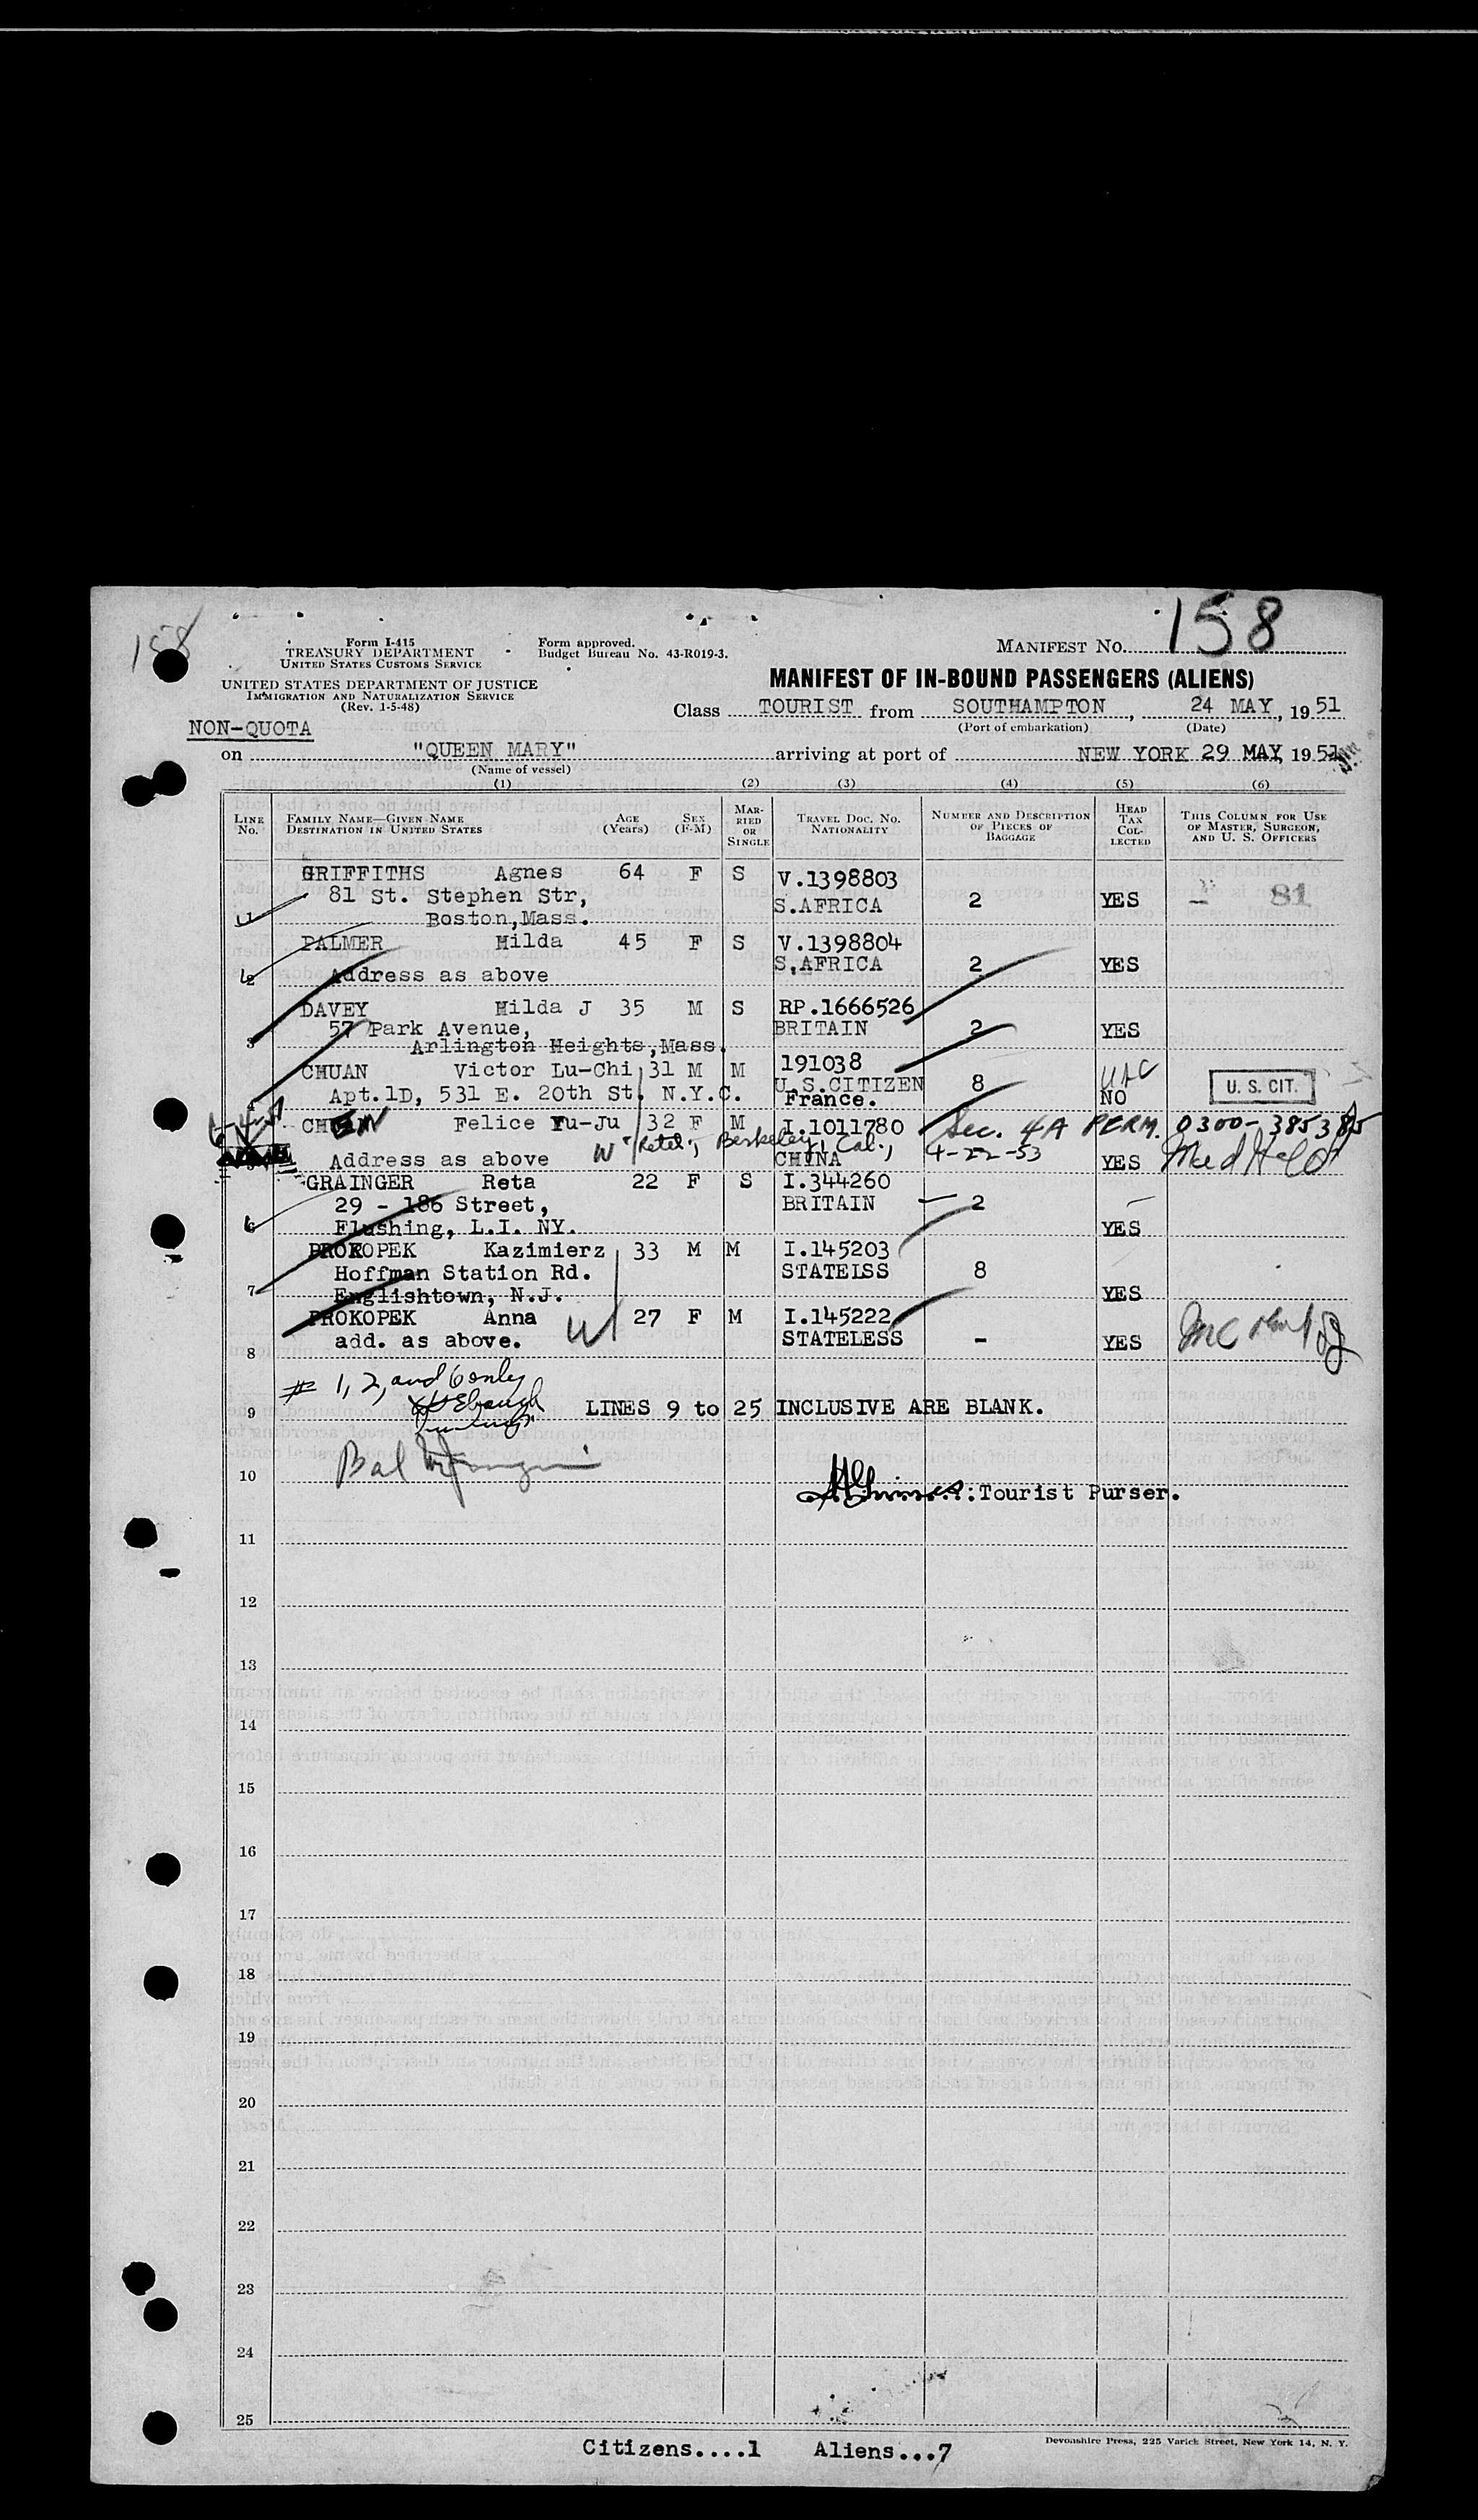 158
Form I-415
TREASURY DEPARTMENT
UNITED STATES CUSTOMS SERVICE
UNITED STATES DEPARTMENT OF JUSTICE
IMMIGRATION AND NATURALIZATION SERVICE
(Rev. 1-5-48)
Form approved.
Budget Bureau No. 43-R019-3.
MANIFEST NO. 158
MANIFEST OF IN-BOUND PASSENGERS (ALIENS)
Class TOURIST from SOUTHAMPTON, 24 MAY, 1951
(Port of embarkation) (Date)
NON-QUOTA
on "QUEEN MARY" arriving at port of NEW YORK 29 MAY, 1951
(Name of vessel)
(1) (2) (3) (4) (5) (6)
LINE NO. FAMILY NAME—GIVEN NAME DESTINATION IN UNITED STATES AGE (Years) SEX (F-M) MARRIED OR SINGLE TRAVEL DOC. NO. NATIONALITY NUMBER AND DESCRIPTION OF PIECES OF BAGGAGE HEAD TAX COLLECTED THIS COLUMN FOR USE OF MASTER, SURGEON, AND U. S. OFFICERS
GRIFFITHS Agnes 64 F S V.1398803
81 St. Stephen Str, S.AFRICA 2 YES 81
1 Boston,Mass.
PALMER Hilda 45 F S V.1398804
2 Address as above S.AFRICA 2 YES
DAVEY Hilda J 35 M S RP.1666526
57 Park Avenue, BRITAIN 2 YES
3 Arlington Heights,Mass.
CHUAN Victor Lu-Chi 31 M M 191038
U.S.CITIZEN 8 U.S. CIT.
Apt.1D, 531 E. 20th St. N.Y.C. France. NO
CHEN Felice Yu-Ju 32 F M I.1011780 Sec. 4A PERM. 0300-385385
Berkeley, Cal., 4-22-53
5 Address as above CHINA YES Med Held
GRAINGER Reta 22 F S I.344260
29 - 186 Street, BRITAIN - 2
6 Flushing, L.I. NY. YES
PROKOPEK Kazimierz 33 M M I.145203
Hoffman Station Rd. STATELSS 8
7 Englishtown, N.J. YES
PROKOPEK Anna 27 F M I.145222
8 add. as above. STATELESS - YES
# 1, 2, and 6 only
9 LINES 9 to 25 INCLUSIVE ARE BLANK.
10 Bal
:Tourist Purser.
11
12
13
14
15
16
17
18
19
20
21
22
23
24
25
Citizens....1 Aliens...7
Devonshire Press, 225 Varick Street, New York 14, N. Y.